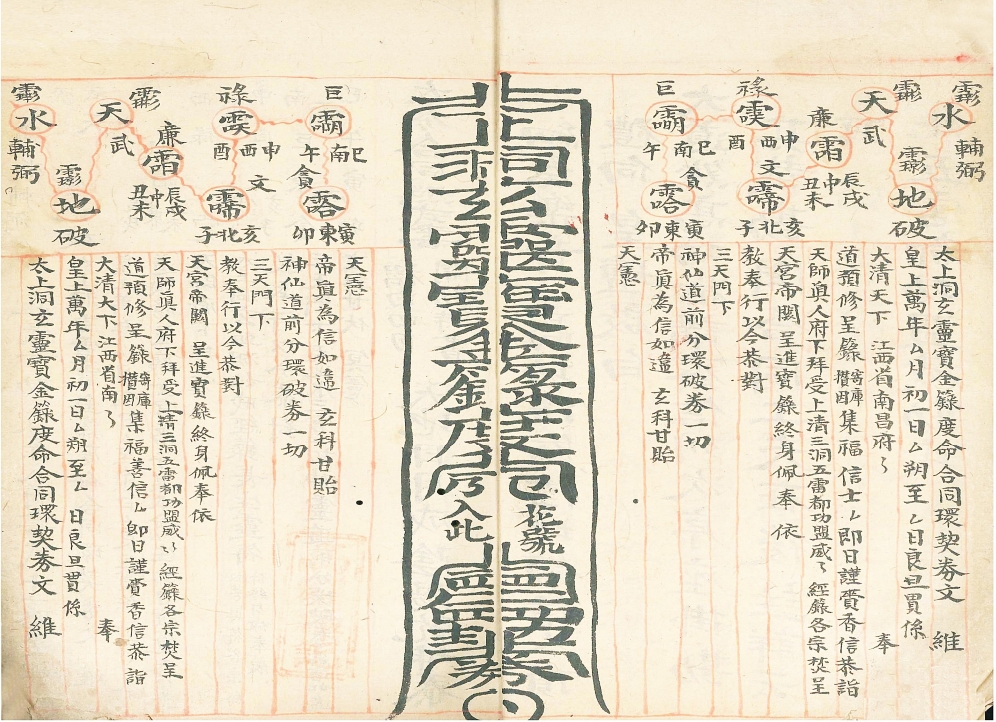 太上洞玄靈寶金籙度命合同環契券文 維
皇上萬年厶月初一日厶朔至厶日良旦貫係
大清天下 江西省南昌府〻 奉
道預修呈籙寄庫攢因集福信士厶即日謹賫香信恭詣
天師真人府下拜受上清三洞五雷都功盟威〻 經籙各宗焚呈
天宮帝闕 呈進寶籙終身佩奉 依
教奉行以今恭對
三天門下
神仙道前分環破券一切
帝真為信如違 玄科甘貽
天憲
水
輔弼
地
破
天
武
廉
霜
辰戌
丑未
中
祿
申
酉 西
文
霈
亥
北
子
巨
巳
南
午
貪
寅
東
卯
花號
入此
券
祿
申
西
酉
文
巨
巳
南
午
貪
寅
東
卯
亥
北
子
天
武
廉
霜
辰戌
中
丑未
水
輔弼
地
破
天憲
帝眞為信如違 玄科甘貽
神仙道前分環破券一切
三天門下
教奉行以今恭對
天宮帝闕 呈進寶籙終身佩奉依
天師眞人府下拜受上清三洞五雷都功盟威〻 經籙各宗焚呈
道預修呈籙寄庫攢因集福善信厶即日謹賫香信恭詣
大清天下江西省南〻 奉
皇上萬年厶月初一日厶朔至厶 日良旦貫係
太上洞玄靈寶金籙度命合同環契券文 維